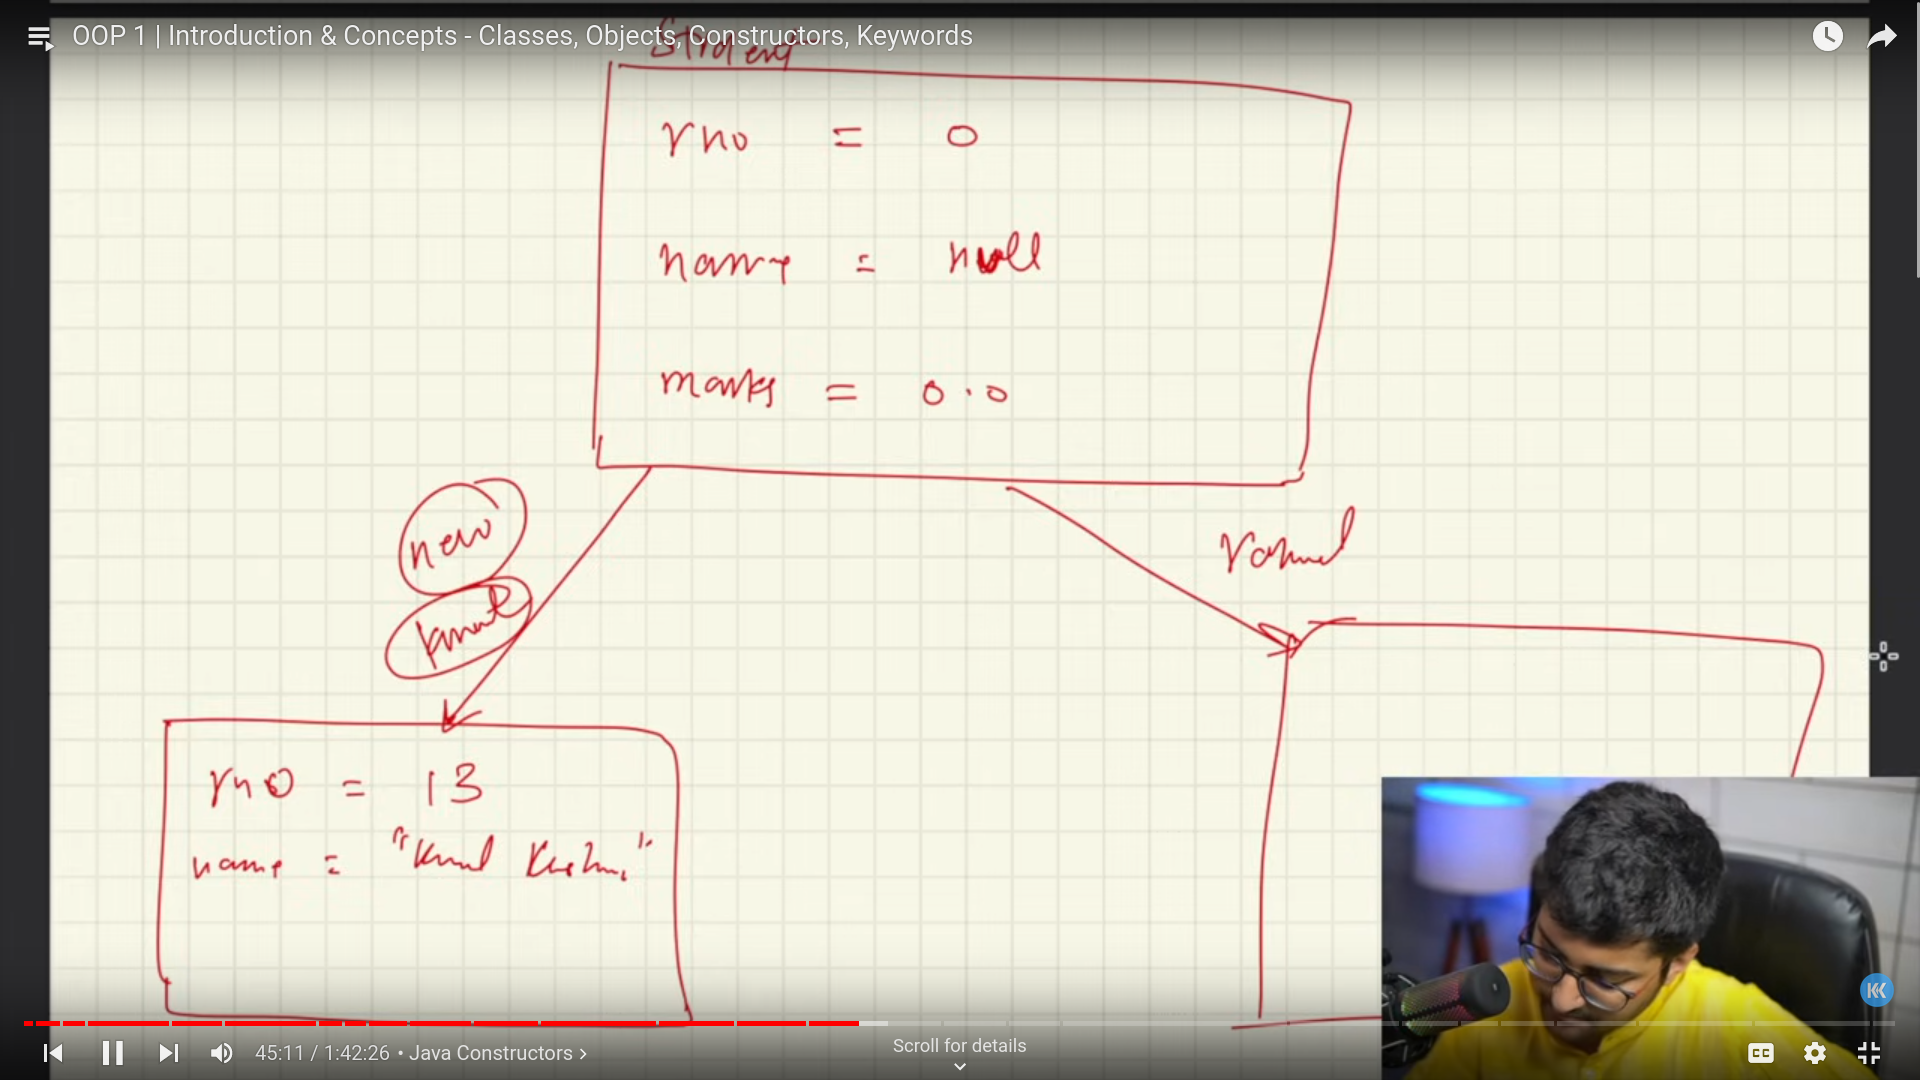 OOP 1 | Introduction & Concepts - Classes, Objects, Constructors, Keywords
Student
rno = 0
name = null
marks = 0.0
new
kunal
rahul
rno = 13
name = "Kunal
45:11 / 1:42:26 • Java Constructors >
Scroll for details
CC